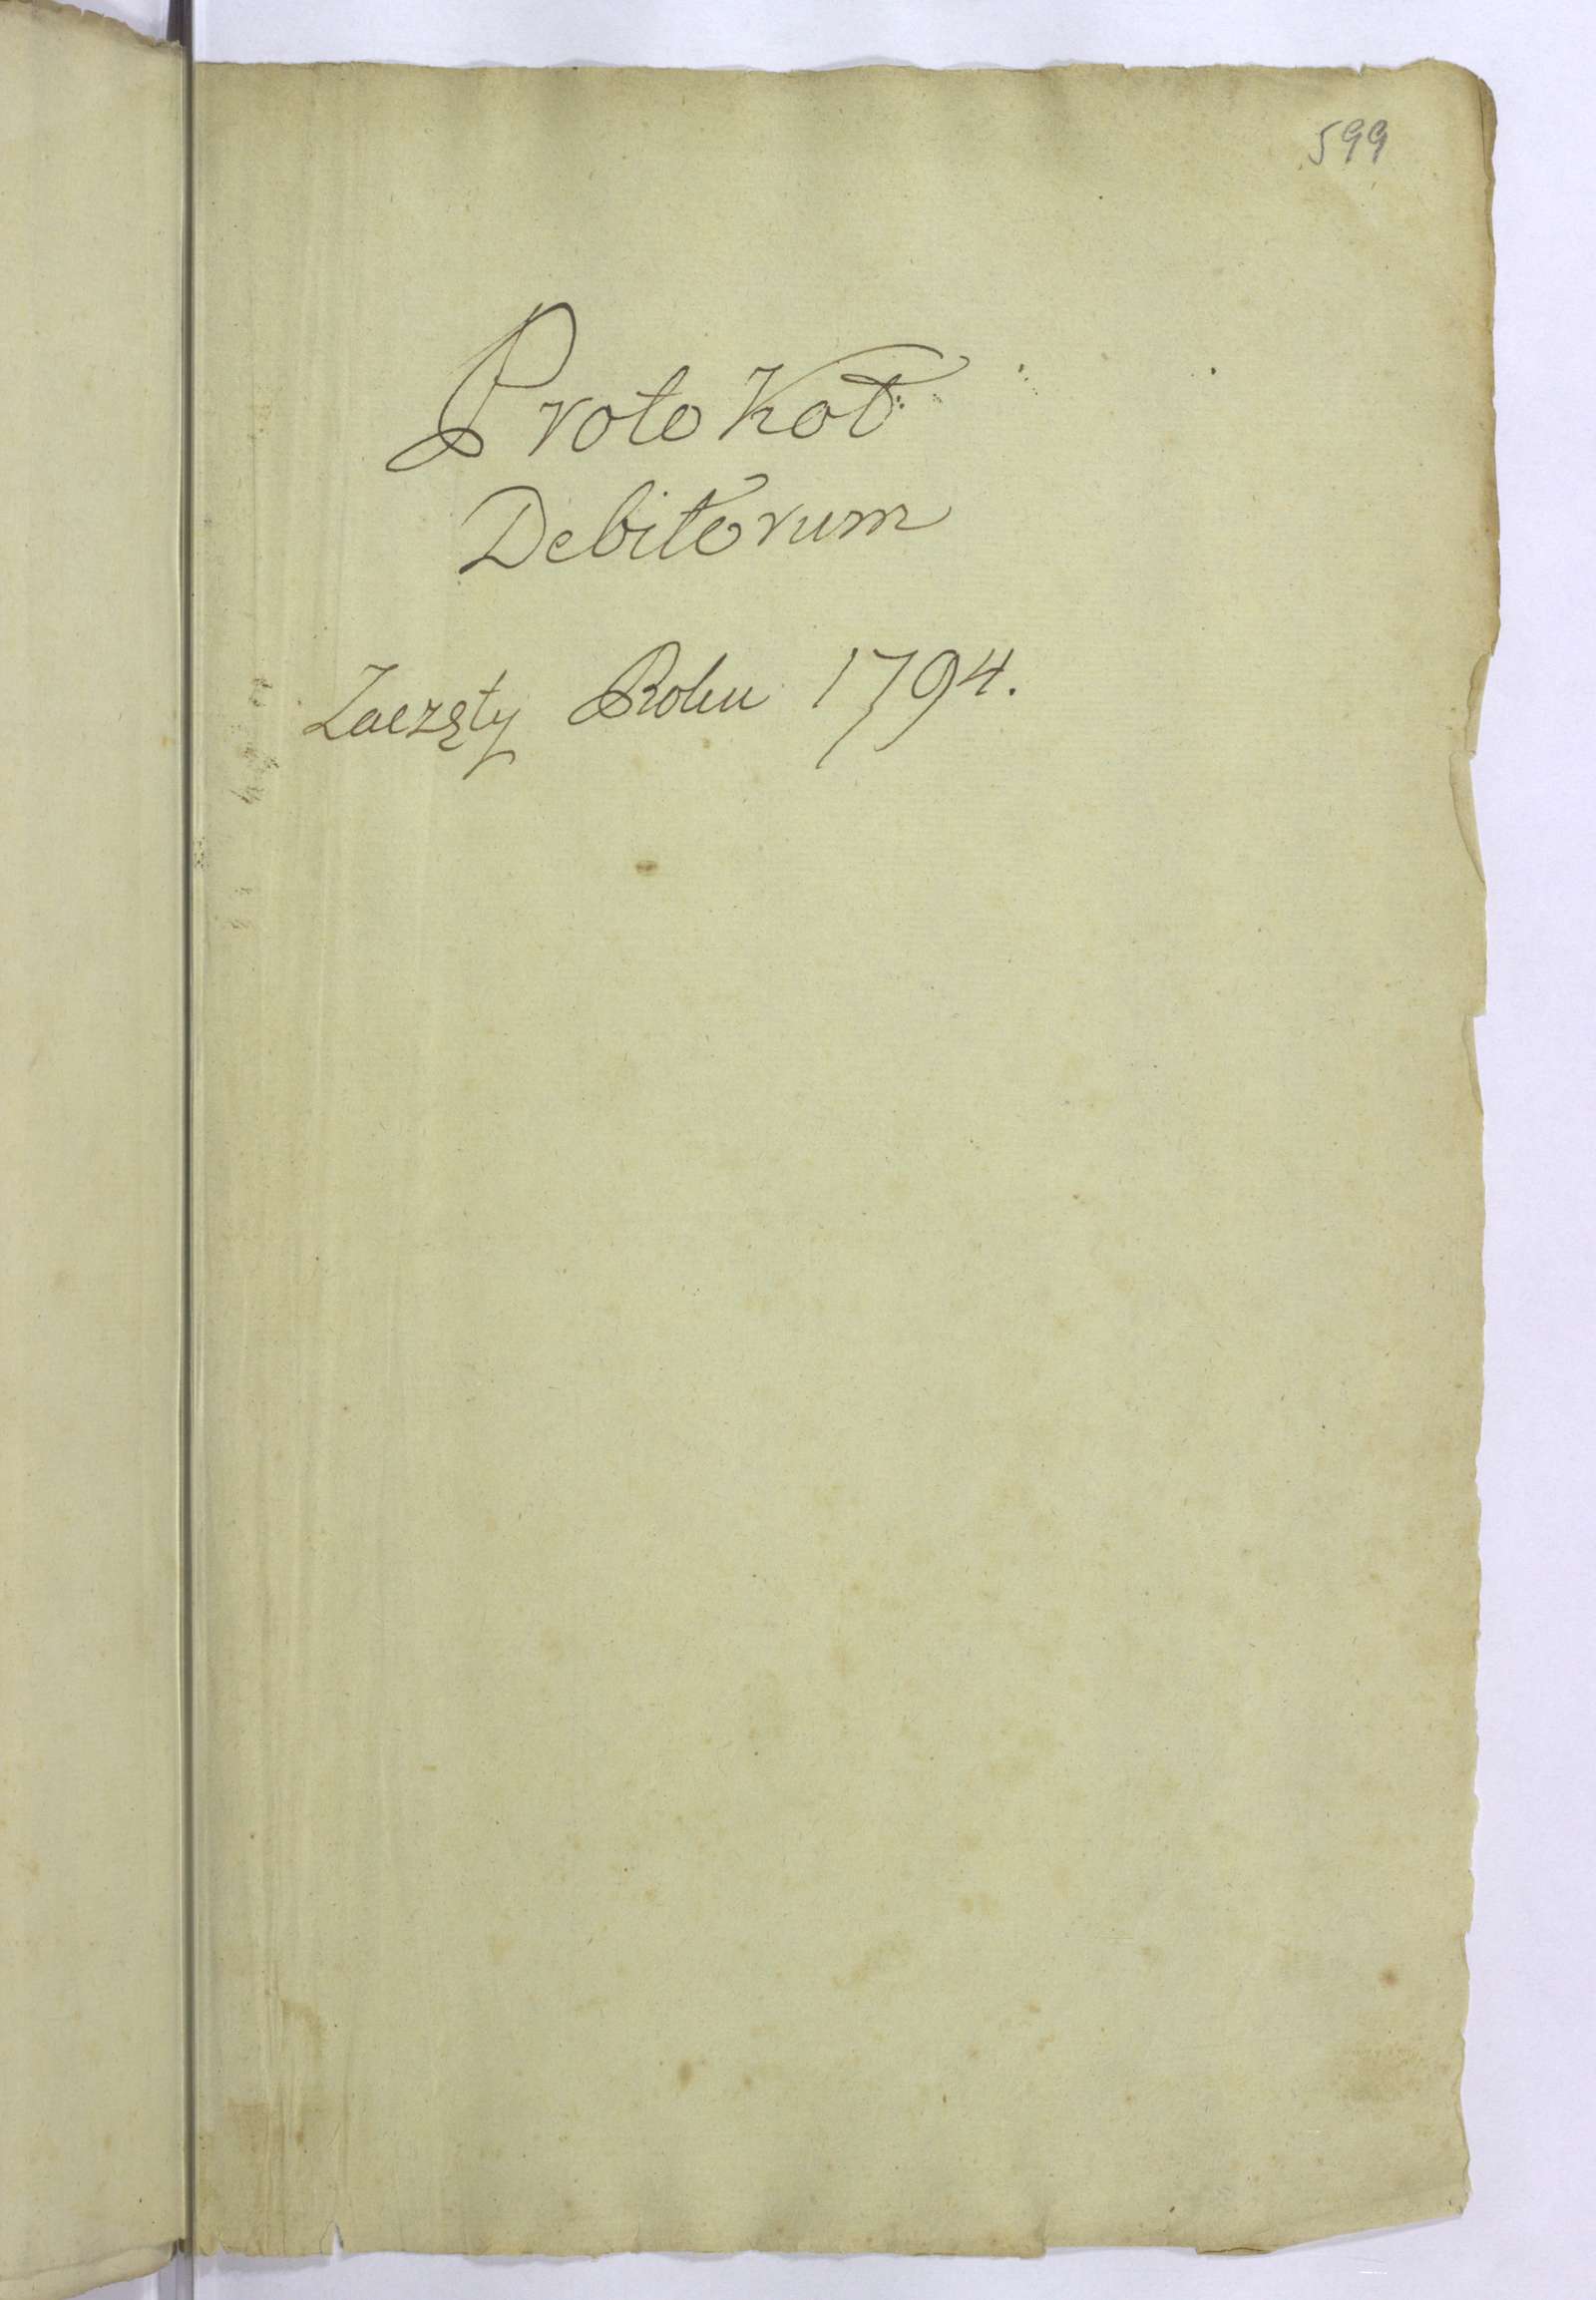 599
Protokoł
Debitorum
Zaczęty Roku 1794.